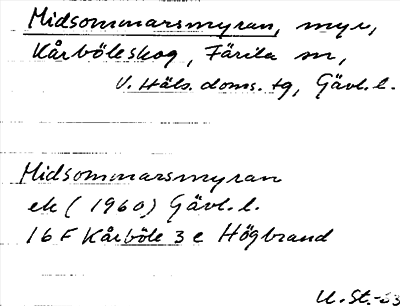 Midsommarsmyran, myr,
Kårböleskog, Färila sn,
V. Häls. doms. tg, Gävl. l.
Midsommarsmyran
ek (1960) Gävl. l.
16 F Kårböle 3 e Högbrand
U. St.-63